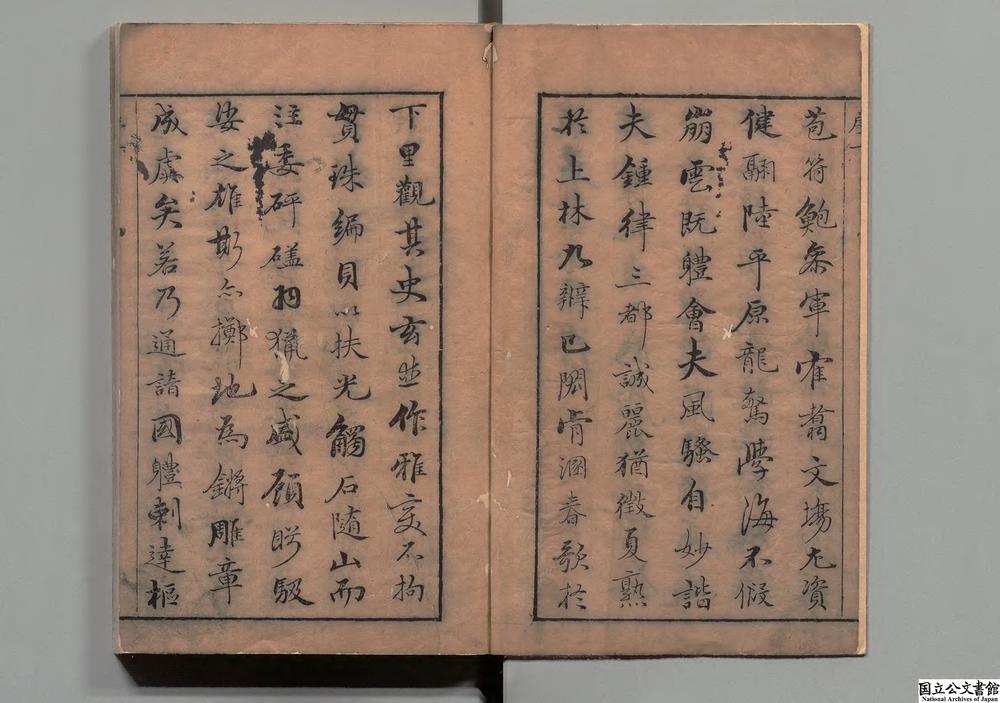 苞符鮑參軍雀翥文場尤資
健翮陸平原龍驚學海不假
崩雲既體會夫風騷自妙諧
夫鍾律三都誠麗猶徵夏熟
於上林九辯已闋骨溷春歌於
下里觀其史玄並作雅變不拘
貫珠編貝以扶光觸石隨山而
注委砰磕羽獵之盛頎眄馺
娑之雄斯亦擲地為鏘雕章
成虞矣若乃通諳國體剌達樞
国立公文書館
National Archives of Japan